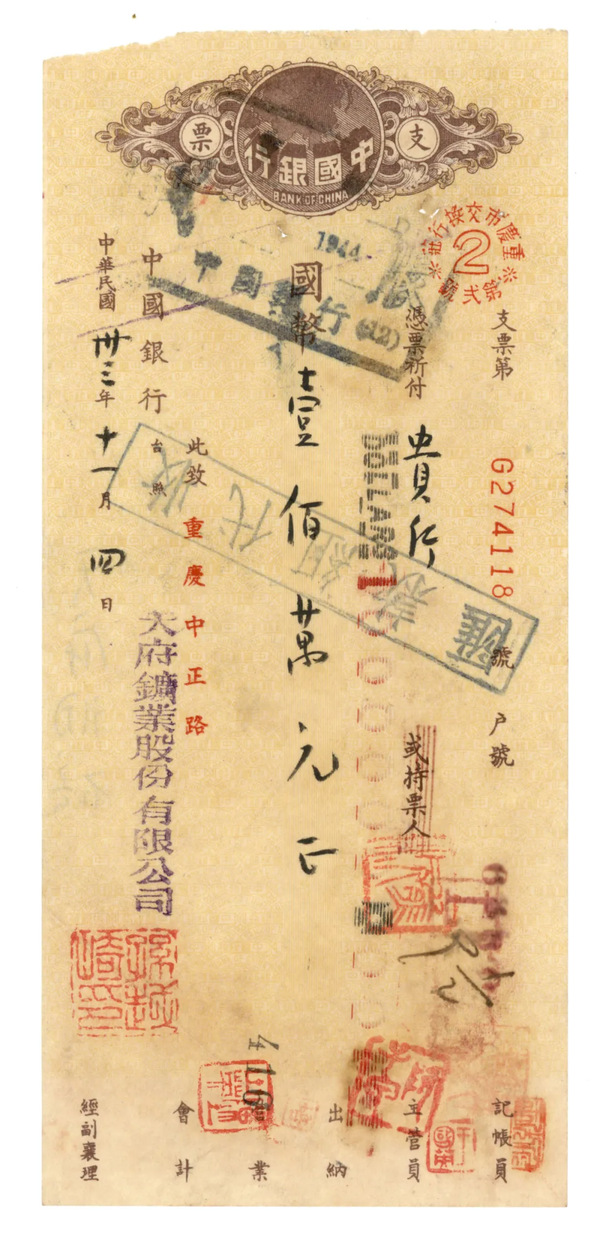 支票
中國銀行
BANK OF CHINA
重慶市交換行莊
2
第弍號
支票第 G274118 號 戶號
憑票祈付 貴行 或持票人
國幣 壹佰萬元正
1944
中國銀行 (612)
DOLLARS
匯款組代收
此致 重慶中正路
中國銀行 台照
天府鑛業股份有限公司
孫越崎印
中華民國 卅三年 十一月 四日
416
記帳員
主管員
出納
營業
會計
經副襄理